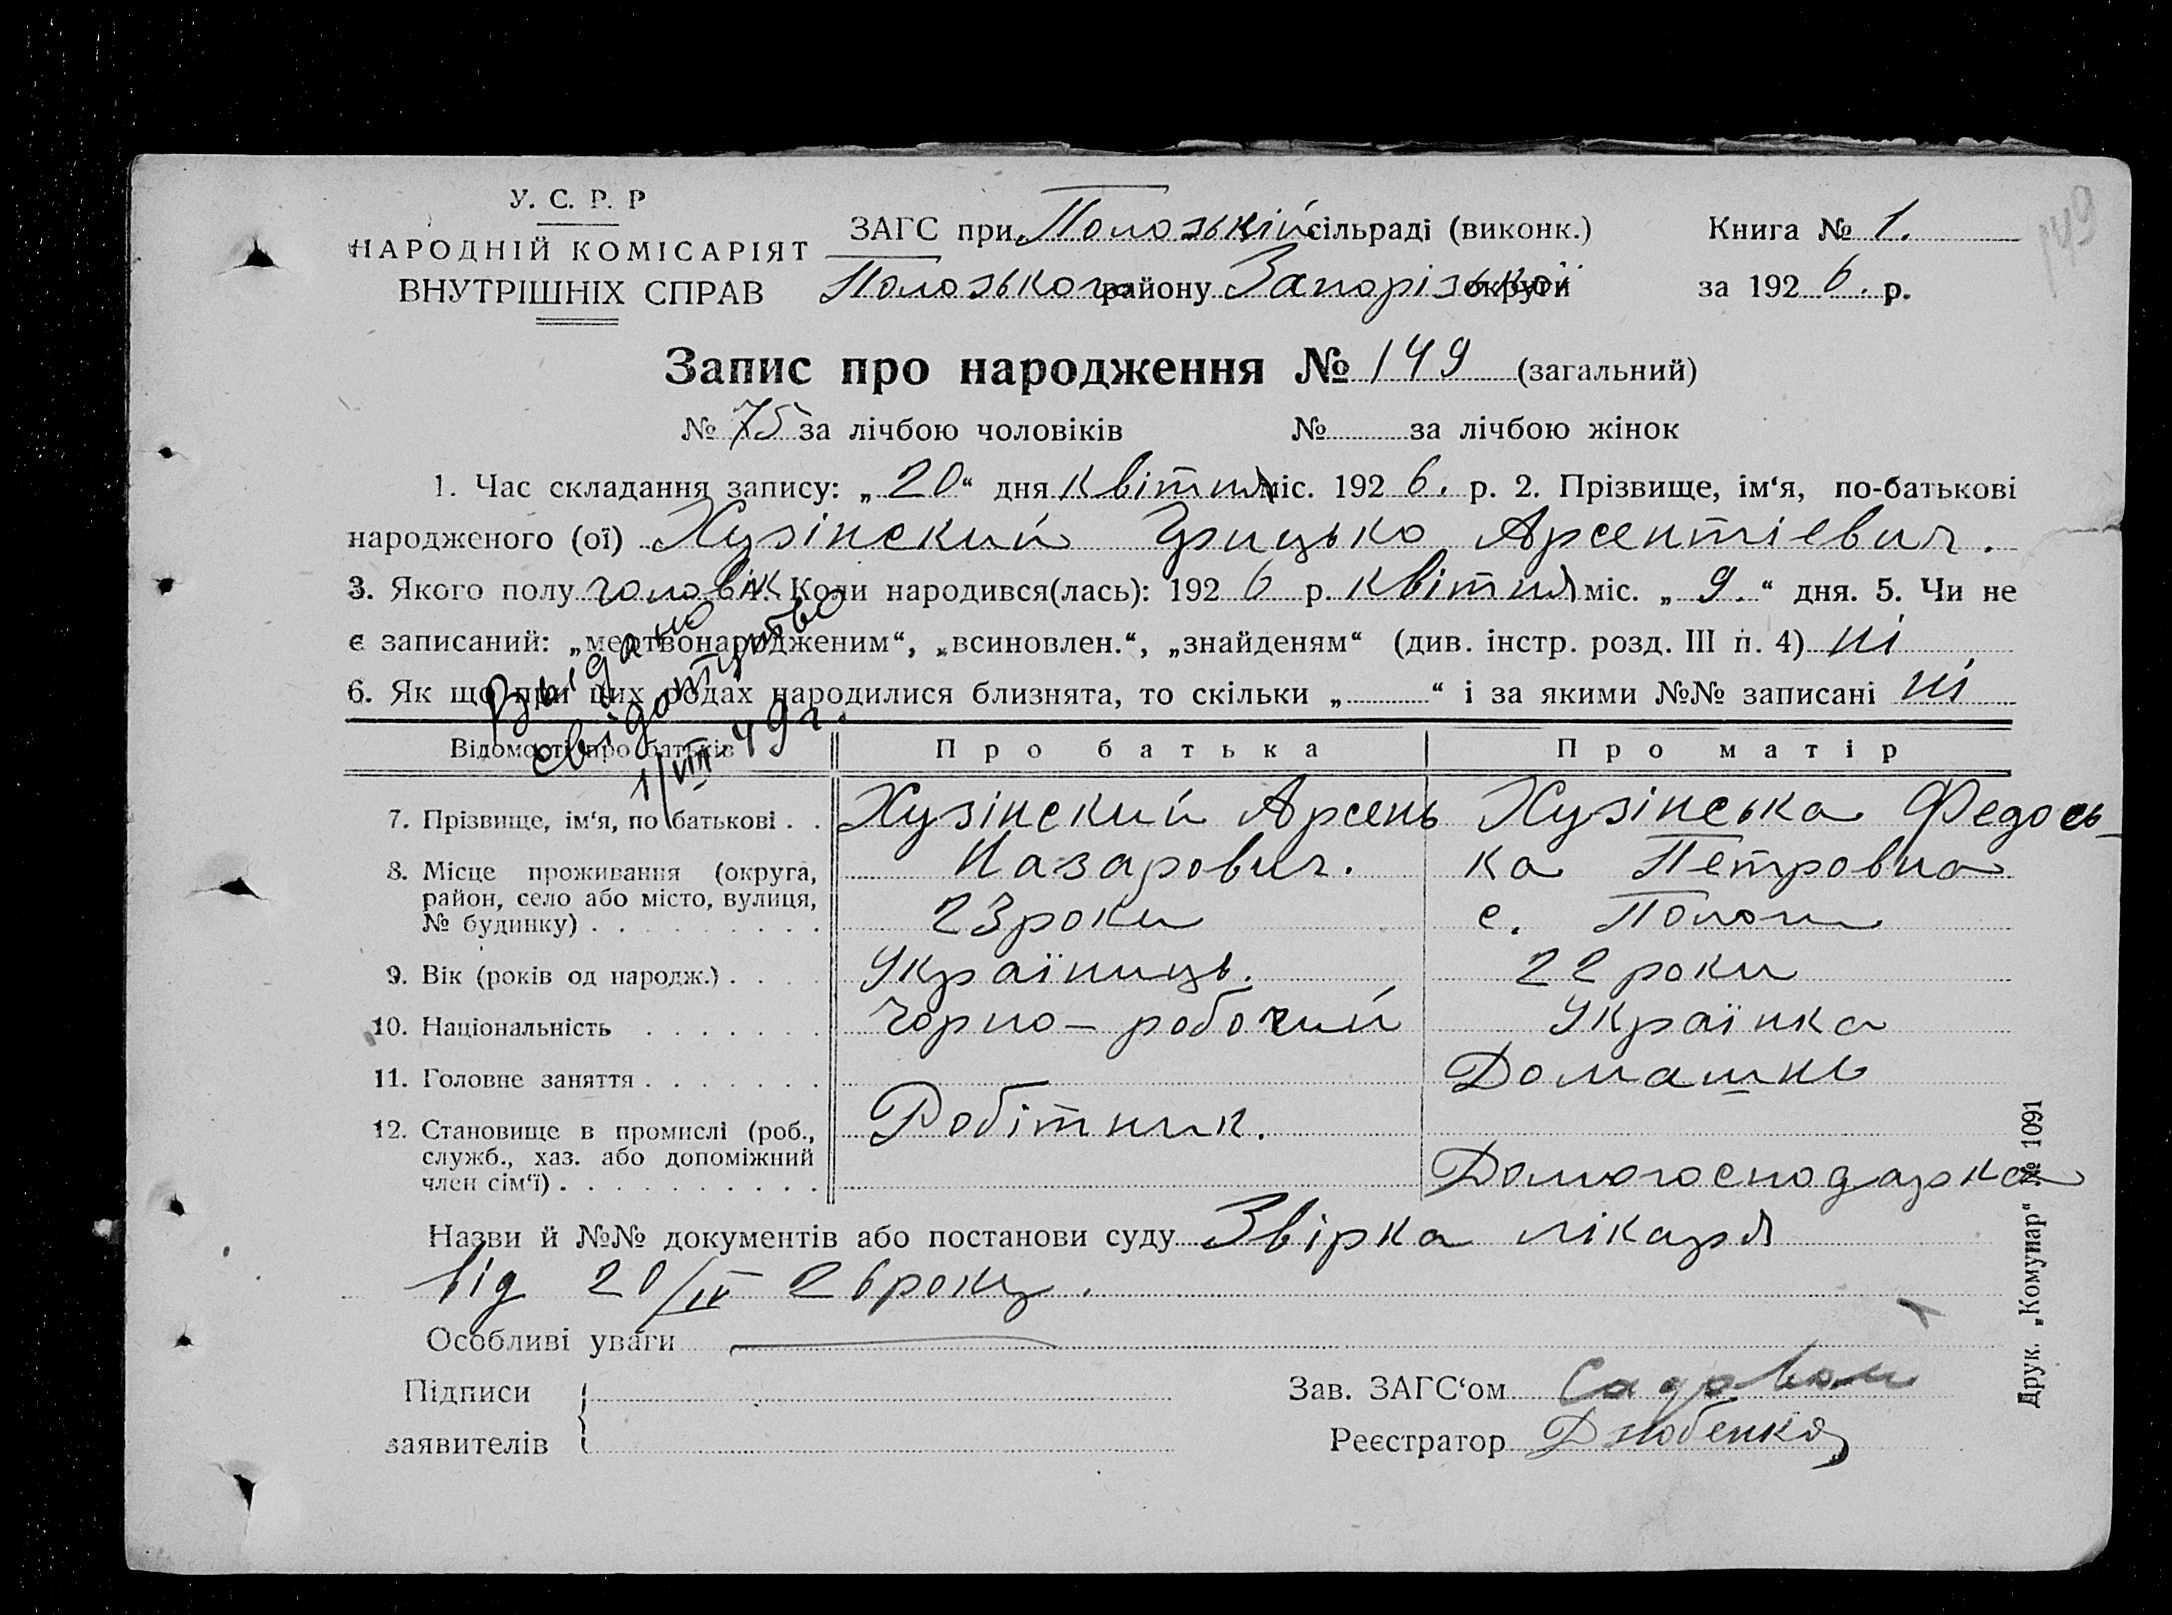 У. С. Р. Р
НАРОДНІЙ КОМІСАРІЯТ
ВНУТРІШНІХ СПРАВ
ЗАГС при Полозькій сільраді (виконк.)
Полозького району Запорізької округи
Книга № 1.
за 1926. р.
149
Запис про народження № 149 (загальний)
№ 75 за лічбою чоловіків № за лічбою жінок
1. Час складання запису: „20“ дня квітня міс. 1926. р. 2. Прізвище, ім‘я, по-батькові
народженого (ої) Хузінский Грицько Арсентієвич.
3. Якого полу чоловік 4. Коли народився(лась): 1926 р. квітня міс. „9.“ дня. 5. Чи не
є записаний: „мертвонародженим“, „всиновлен.“, „знайденям“ (див. інстр. розд. III п. 4) ні
6. Як що при цих родах народилися близнята, то скільки „ “ і за якими №№ записані ні
Выідано
свідоцтво
1/VIII 49 г.
Відомості про батьків Про батька Про матір
7. Прізвище, ім‘я, по батькові . . Хузінский Арсень Хузінська Федось-
8. Місце проживання (округа, Назарович. ка Петровна
район, село або місто, вулиця,
№ будинку) . . . . . . . . . 23 роки с. Пологи
9. Вік (років од народж.) . . . . Україниць. 22 роки
10. Національність . . . . . . . Чорно-робочий Українка
11. Головне заняття . . . . . . . Домашнь
12. Становище в промислі (роб., Робітник.
служб., хаз. або допоміжний
член сім‘ї) . . . . . . . . . . Домогосподарка
Назви й №№ документів або постанови суду Звірка лікаря
від 20/IV 26 року.
Особливі уваги
Підписи
заявителів
Зав. ЗАГС‘ом
Реєстратор
Друк. „Комунар“ № 1091